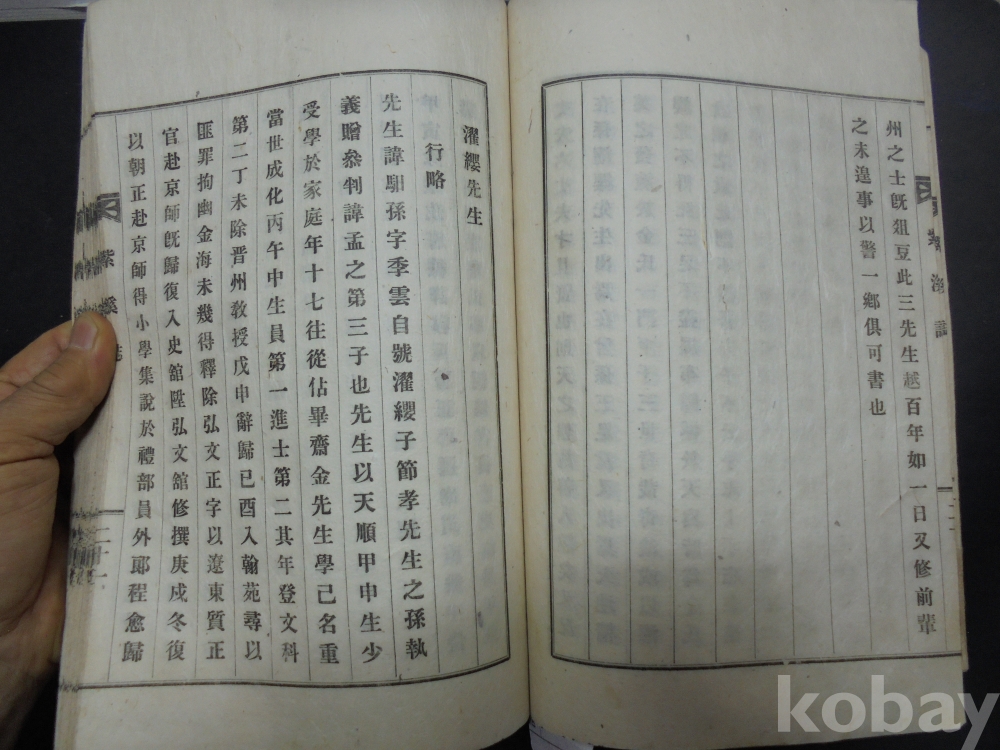 州之士既俎豆此三先生越百年如一日又修前輩
之未遑事以警一鄉俱可書也
濯纓先生
行略
先生諱馹孫字季雲自號濯纓子節孝先生之孫執
義贈叅判諱孟之第三子也先生以天順甲申生少
受學於家庭年十七往從佔畢齋金先生學已名重
當世成化丙午中生員第一進士第二其年登文科
第二丁未除晋州敎授戊申辭歸已酉入翰苑尋以
匪罪拘幽金海未幾得釋除弘文正字以遼東質正
官赴京師旣歸復入史舘陞弘文舘修撰庚戌冬復
以朝正赴京師得小學集說於禮部員外郞程愈歸
紫溪
誌
二十一
kobay